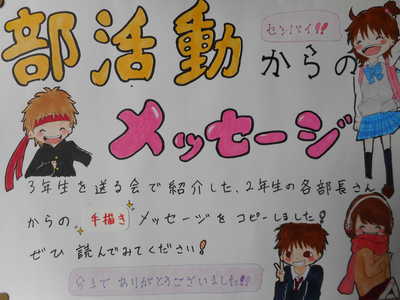 部活動からの
センパイ!!
メッセージ
3年生を送る会で紹介した、2年生の各部長さん
からの 手描き メッセージをコピーしました!
ぜひ 読んでみてください!
今まで ありがとうございました!!